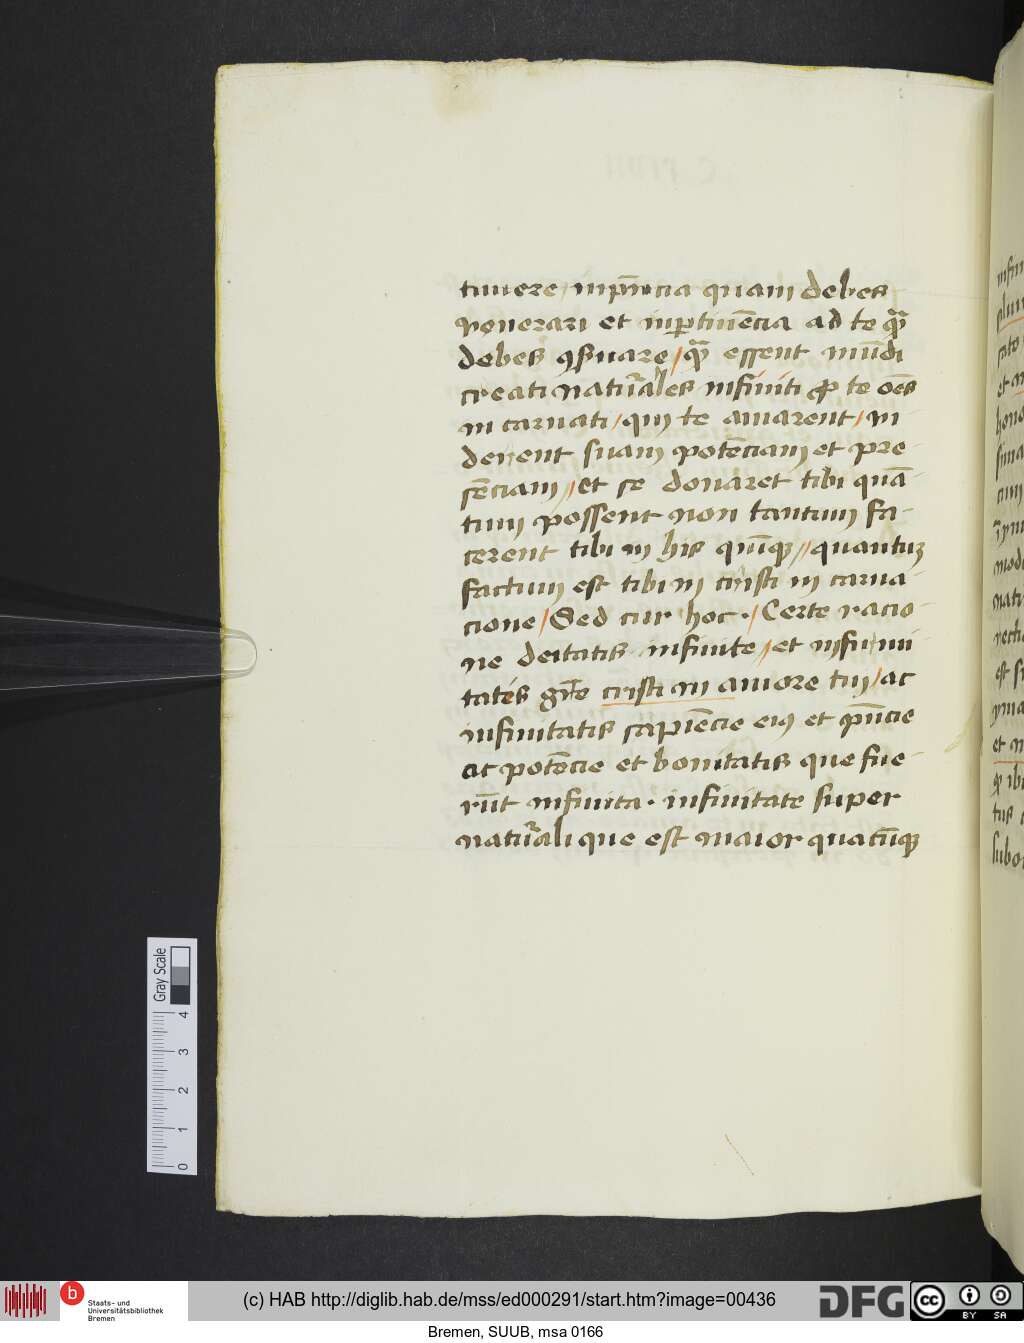 timere / inp̄ncia quam debes
venerari et inp̲tinēcia ad te qᷓ
debes ꝯſ̲uare / qᷓ essent mūdi
creati natu͛ales infiniti ꝓ te oēs
in carnati / qui te amarent / in
derent suam potēciam et pre
sēciam / et se donaret tibi quā
tum possent non tantum fa
cerent tibi in his qūiqꝫ // quantuꝫ
factum est tibi in cristi in carna
cione / Sed cur hoc · / Certe racio
ne deitatis infinite / et infini
tates cristi in amore tui / ac
infinitatis sapiēcie eiꝰ et p̄ncie
ac potēcie et bonitatis que fue
rūt infinita · infinitate super
natu͛ali que est maior quātūqꝫ
Gray Scale
0 1 2 3 4
b
Staats- und
Universitätsbibliothek
Bremen
(c) HAB http://diglib.hab.de/mss/ed000291/start.htm?image=00436
DFG
cc BY SA
Bremen, SUUB, msa 0166